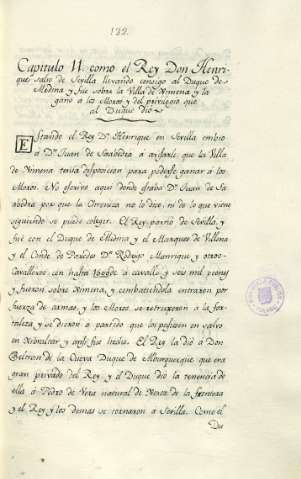 122.
Capitulo 11. como el Rey Don Henri-
que salio de Sevilla llevando consigo al Duque de
Medina y fue sobre la Villa de Ximena y la
gano a los Moros y del privilegio que
al Duque dio
Estando el Rey Dn. Henrique en Sevilla embio
a Dn. Juan de Saabedra a avisarle que la Villa
de Ximena tenia disposicion para poderse ganar a los
Moros. No escrivo aqui donde estaba Dn. Juan de Saa
bedra por que la Chronica no lo dice, ni de lo que viene
siguiendo se puede colegir. El Rey partio de Sevilla, y
fue con el Duque de Medina y el Marques de Villena
y el Conde de Paredes Dn. Rodrigo Manrique, y otros
Cavalleros con hasta de a cavallo y seis mil peones
y fueron sobre Ximena, y combatiendola entraron por
fuerza de armas y los Moros se retruxeron a la for-
taleza y se dieron a partido que los pusiesen en salvo
en y assi fue hecho. El Rey la dio a Don
Beltran de la Cueva Duque de Alburquerque que era
gran privado del Rey y el Duque dio la tenencia de
ella a Pedro de Vera natural de Xerez de la frontera
y el Rey y los demas se tornaron a Sevilla. Como el
Du